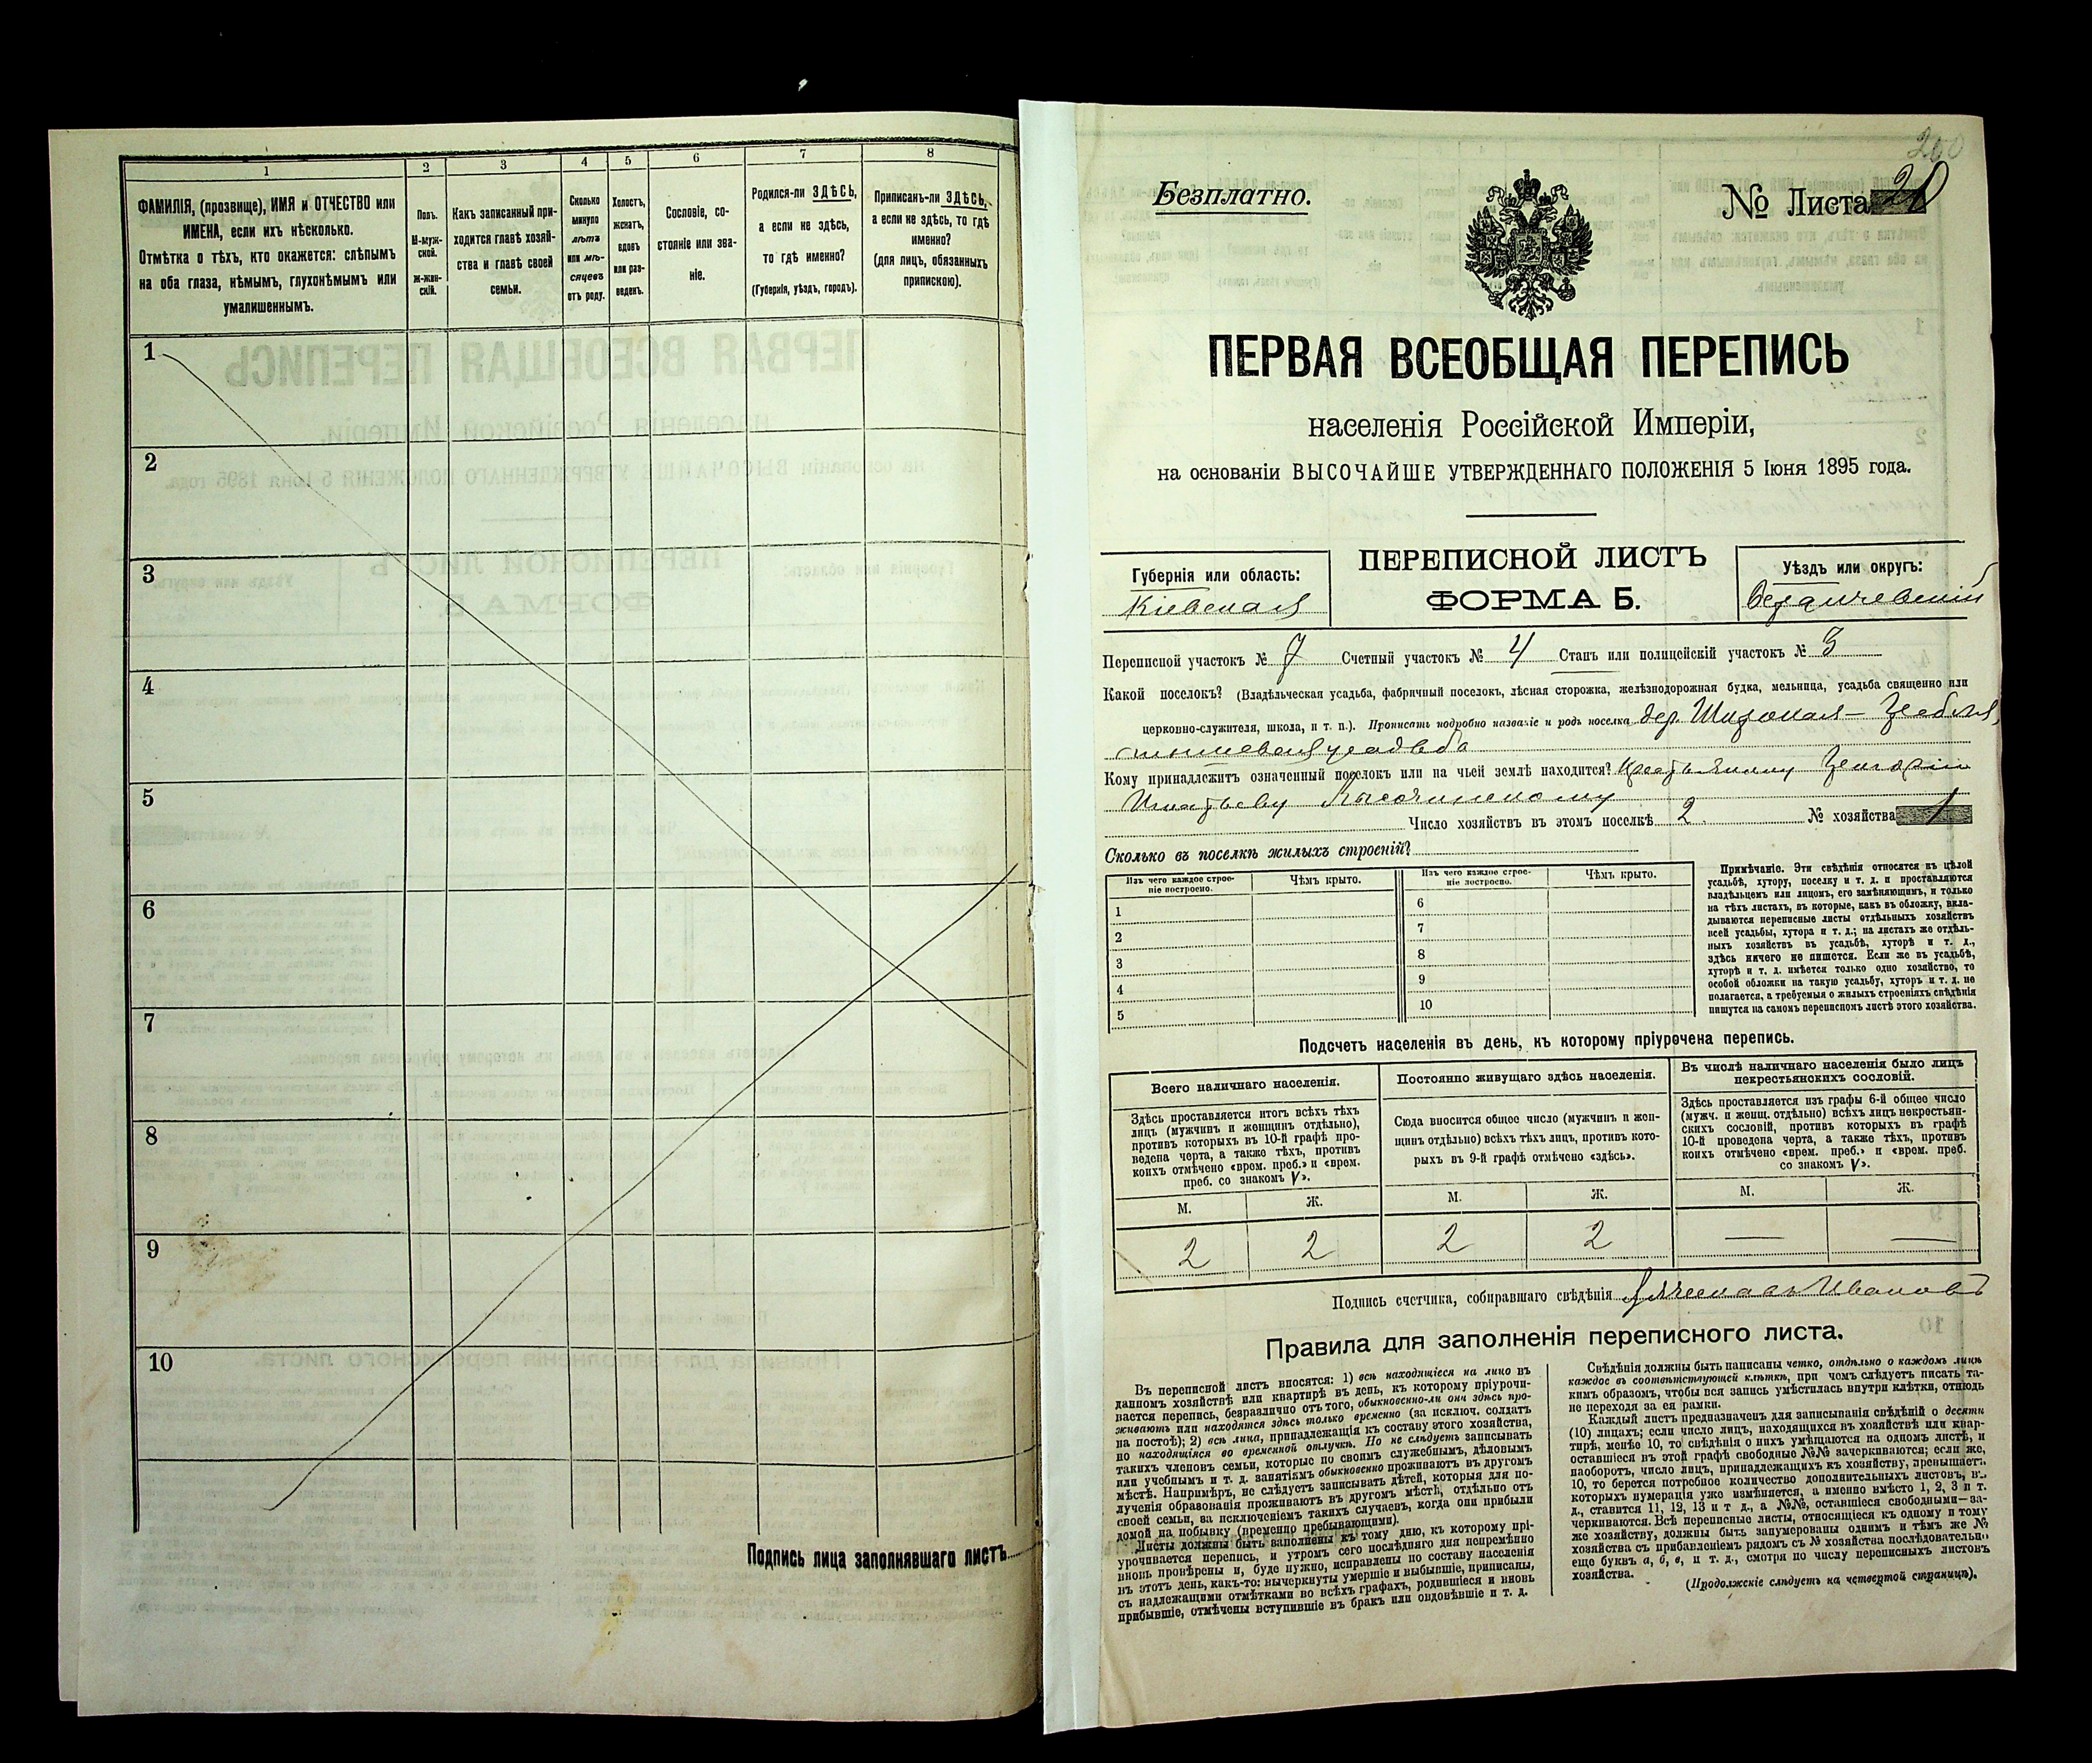 1
2
3
4
5
6
7
8
ФАМИЛІЯ, (прозвище), ИМЯ и ОТЧЕСТВО или
ИМЕНА, если ихъ нѣсколько.
Отмѣтка о тѣхъ, кто окажется: слѣпымъ
на оба глаза, нѣмымъ, глухонѣмымъ или
умалишеннымъ.
Полъ.
М-муж-
ской.
Ж-жен-
скій.
Какъ записанный при-
ходится главѣ хозяй-
ства и главѣ своей
семьи.
Сколько
минуло
лѣтъ
или мѣ-
сяцевъ
отъ роду.
Холостъ,
женатъ,
вдовъ
или раз-
веденъ.
Сословіе, со-
стояніе или зва-
ніе.
Родился-ли ЗДѢСЬ,
а если не здѣсь,
то гдѣ именно?
(Губернія, уѣздъ, городъ).
Приписанъ-ли ЗДѢСЬ,
а если не здѣсь, то гдѣ
именно?
(для лицъ, обязанныхъ
припискою).
1
2
3
4
5
6
7
8
9
10
Подпись лица заполнявшаго листъ
200
Безплатно.
№ Листа
ПЕРВАЯ ВСЕОБЩАЯ ПЕРЕПИСЬ
населенія Россійской Имперіи,
на основаніи ВЫСОЧАЙШЕ УТВЕРЖДЕННАГО ПОЛОЖЕНІЯ 5 Іюня 1895 года.
Губернія или область:
Кіевская
ПЕРЕПИСНОЙ ЛИСТЪ
ФОРМА Б.
Уѣздъ или округъ:
Бердичевскій
Переписной участокъ № 7 Счетный участокъ № 4 Станъ или полицейскій участокъ № 3
Какой поселокъ? (Владѣльческая усадьба, фабричный поселокъ, лѣсная сторожка, желѣзнодорожная будка, мельница, усадьба священно или
церковно-служителя, школа, и т. п.). Прописать подробно названіе и родъ поселка дер. Широкая-Гребля,
усадьба
Кому принадлежитъ означенный поселокъ или на чьей землѣ находится? Крестьянину Григорію
Игнатьеву
Число хозяйствъ въ этомъ поселкѣ 2. № хозяйства 1
Сколько въ поселкѣ жилыхъ строеній?
Изъ чего каждое строе-
ніе построено.
Чѣмъ крыто.
Изъ чего каждое строе-
ніе построено.
Чѣмъ крыто.
1
2
3
4
5
6
7
8
9
10
Примѣчаніе. Эти свѣдѣнія относятся къ цѣлой
усадьбѣ, хутору, поселку и т. д. и проставляются
владѣльцемъ или лицомъ, его замѣняющимъ, и только
на тѣхъ листахъ, въ которые, какъ въ обложку, вкла-
дываются переписные листы отдѣльныхъ хозяйствъ
всей усадьбы, хутора и т. д.; на листахъ же отдѣль-
ныхъ хозяйствъ въ усадьбѣ, хуторѣ и т. д.,
здѣсь ничего не пишется. Если же въ усадьбѣ,
хуторѣ и т. д. имѣется только одно хозяйство, то
особой обложки на такую усадьбу, хуторъ и т. д. не
полагается, а требуемыя о жилыхъ строеніяхъ свѣдѣнія
пишутся на самомъ переписномъ листѣ этого хозяйства.
Подсчетъ населенія въ день, къ которому пріурочена перепись.
Всего наличнаго населенія.
Здѣсь проставляется итогъ всѣхъ тѣхъ
лицъ (мужчинъ и женщинъ отдѣльно),
противъ которыхъ въ 10-й графѣ про-
ведена черта, а также тѣхъ, противъ
коихъ отмѣчено «врем. преб.» и «врем.
преб. со знакомъ V».
Постоянно живущаго здѣсь населенія.
Сюда вносится общее число (мужчинъ и жен-
щинъ отдѣльно) всѣхъ тѣхъ лицъ, противъ кото-
рыхъ въ 9-й графѣ отмѣчено «здѣсь».
Въ числѣ наличнаго населенія было лицъ
некрестьянскихъ сословій.
Здѣсь проставляется изъ графы 6-й общее число
(мужч. и женщ. отдѣльно) всѣхъ лицъ некрестьян-
скихъ сословій, противъ которыхъ въ графѣ
10-й проведена черта, а также тѣхъ, противъ
коихъ отмѣчено «врем. преб.» и «врем. преб.
со знакомъ V».
М. Ж. М. Ж. М. Ж.
2 2 2 2 — —
Подпись счетчика, собиравшаго свѣдѣнія Ивановъ
Правила для заполненія переписного листа.
Въ переписной листъ вносятся: 1) всѣ находящіеся на лицо въ
данномъ хозяйствѣ или квартирѣ въ день, къ которому пріурочи-
вается перепись, безразлично отъ того, обыкновенно-ли они здѣсь про-
живаютъ или находятся здѣсь только временно (за исключ. солдатъ
на постоѣ); 2) всѣ лица, принадлежащія къ составу этого хозяйства,
но находящіяся во временной отлучкѣ. Но не слѣдуетъ записывать
такихъ членовъ семьи, которые по своимъ служебнымъ, дѣловымъ
или учебнымъ и т. д. занятіямъ обыкновенно проживаютъ въ другомъ
мѣстѣ. Напримѣръ, не слѣдуетъ записывать дѣтей, которыя для по-
лученія образованія проживаютъ въ другомъ мѣстѣ, отдѣльно отъ
своей семьи, за исключеніемъ такихъ случаевъ, когда они прибыли
домой на побывку (временно пребывающими).
Листы должны быть заполнены къ тому дню, къ которому прі-
урочивается перепись, и утромъ сего послѣдняго дня непремѣнно
вновь провѣрены и, буде нужно, исправлены по составу населенія
въ этотъ день, какъ-то: вычеркнуты умершіе и выбывшіе, приписаны,
съ надлежащими отмѣтками во всѣхъ графахъ, родившіеся и вновь
прибывшіе, отмѣчены вступившіе въ бракъ или овдовѣвшіе и т. д.
Свѣдѣнія должны быть написаны четко, отдѣльно о каждомъ лицѣ
каждое въ соотвѣтствующей клѣткѣ, при чемъ слѣдуетъ писать та-
кимъ образомъ, чтобы вся запись умѣстилась внутри клѣтки, отнюдь
не переходя за ея рамки.
Каждый листъ предназначенъ для записыванія свѣдѣній о десяти
(10) лицахъ; если число лицъ, находящихся въ хозяйствѣ или квар-
тирѣ, менѣе 10, то свѣдѣнія о нихъ умѣщаются на одномъ листѣ, и
оставшіеся въ этой графѣ свободные №№ зачеркиваются; если же,
наоборотъ, число лицъ, принадлежащихъ къ хозяйству, превышаетъ
10, то берется потребное количество дополнительныхъ листовъ, въ
которыхъ нумерація уже измѣняется, а именно вмѣсто 1, 2, 3 и т.
д., ставится 11, 12, 13 и т д., а №№, оставшіеся свободными—за-
черкиваются. Всѣ переписные листы, относящіеся къ одному и тому
же хозяйству, должны быть занумерованы однимъ и тѣмъ же №
хозяйства съ прибавленіемъ рядомъ съ № хозяйства послѣдовательно
еще буквъ а, б, в, и т. д., смотря по числу переписныхъ листовъ
хозяйства.
(Продолженіе слѣдуетъ на четвертой страницѣ).